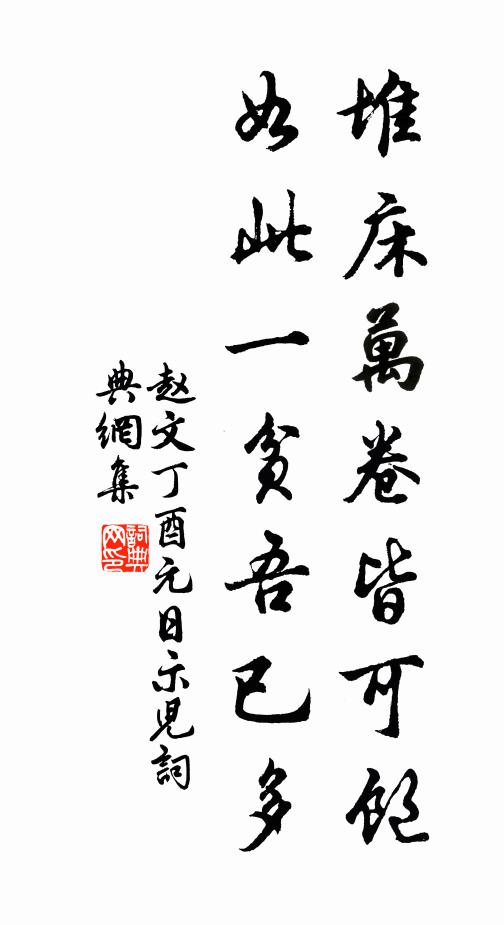 堆床萬卷皆可飽
如此一貧吾已多
赵文丁酉元日示児詞
典網集
詞典网印